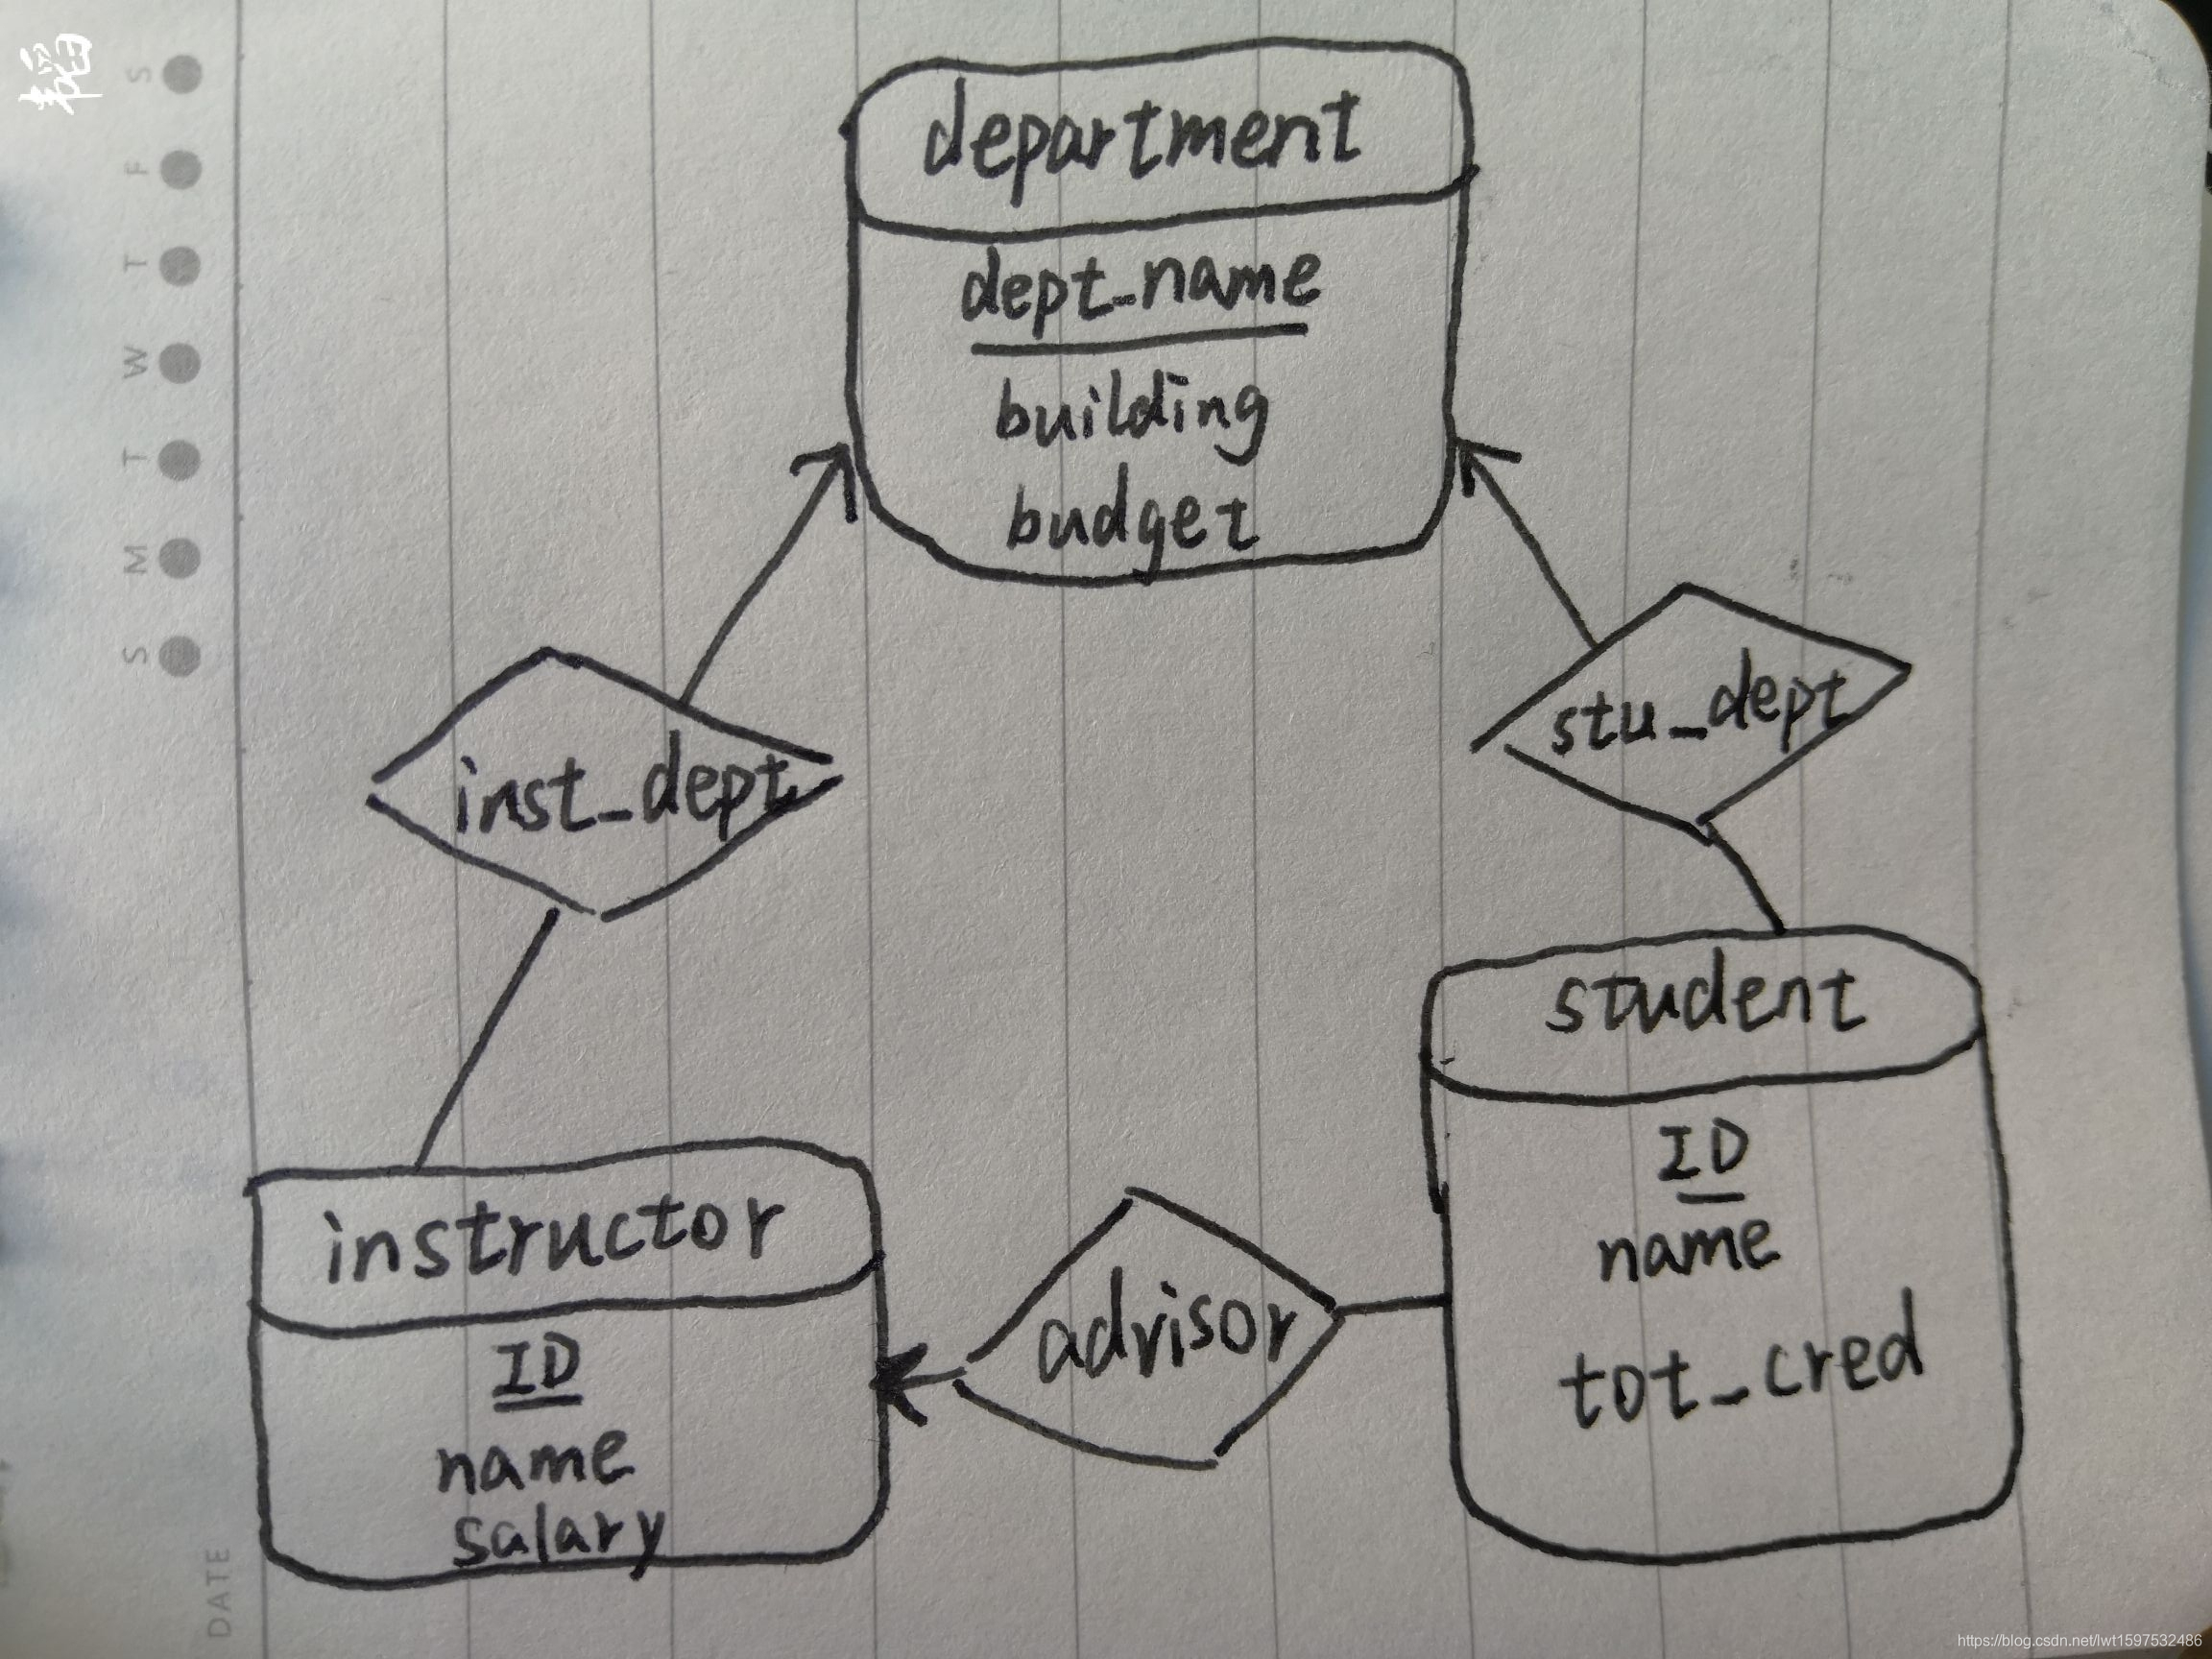 department
dept_name
building
budget
inst_dept
stu_dept
instructor
ID
name
salary
advisor
student
ID
name
tot_cred
S
F
T
W
T
M
S
DATE
https://blog.csdn.net/lwt1597532486